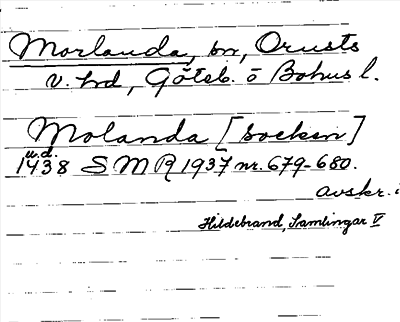 Morlanda, sn, Orusts
v. hd, Göteb. o Bohus l.
Molanda [socken]
u.d.
1438 SMR 1937 nr. 679-680.
avskr. i
Hildebrand, Samlingar V